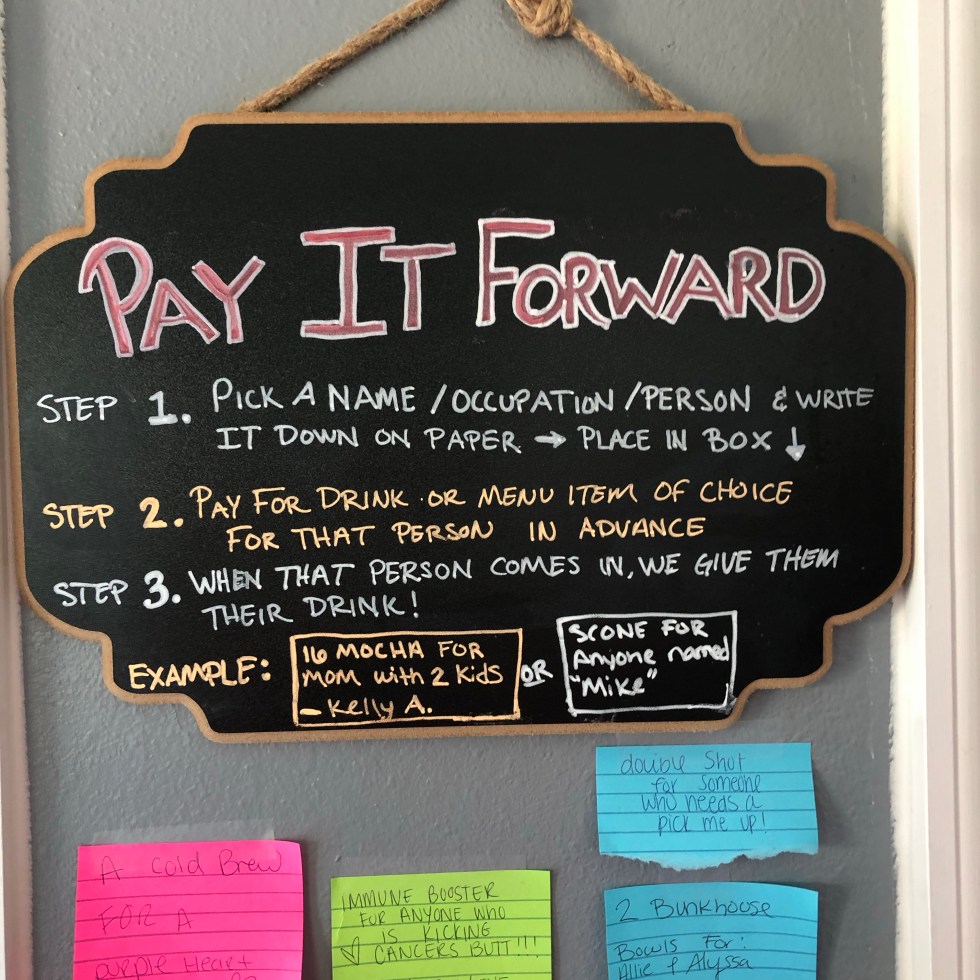 PAY IT FORWARD
STEP 1. PICK A NAME / OCCUPATION / PERSON & WRITE
IT DOWN ON PAPER → PLACE IN BOX ↓
STEP 2. PAY FOR DRINK OR MENU ITEM OF CHOICE
FOR THAT PERSON IN ADVANCE
STEP 3. WHEN THAT PERSON COMES IN, WE GIVE THEM
THEIR DRINK!
EXAMPLE:
16 MOCHA FOR
MOM with 2 Kids
- Kelly A.
OR
SCONE FOR
Anyone named
"Mike"
double Shot
for someone
who needs a
pick me up!
A Cold Brew
FOR A
purple Heart
IMMUNE BOOSTER
FOR ANYONE WHO
IS KICKING
♡ CANCERS BUTT!!!
2 Bunkhouse
Bowls For:
Allie & Alyssa